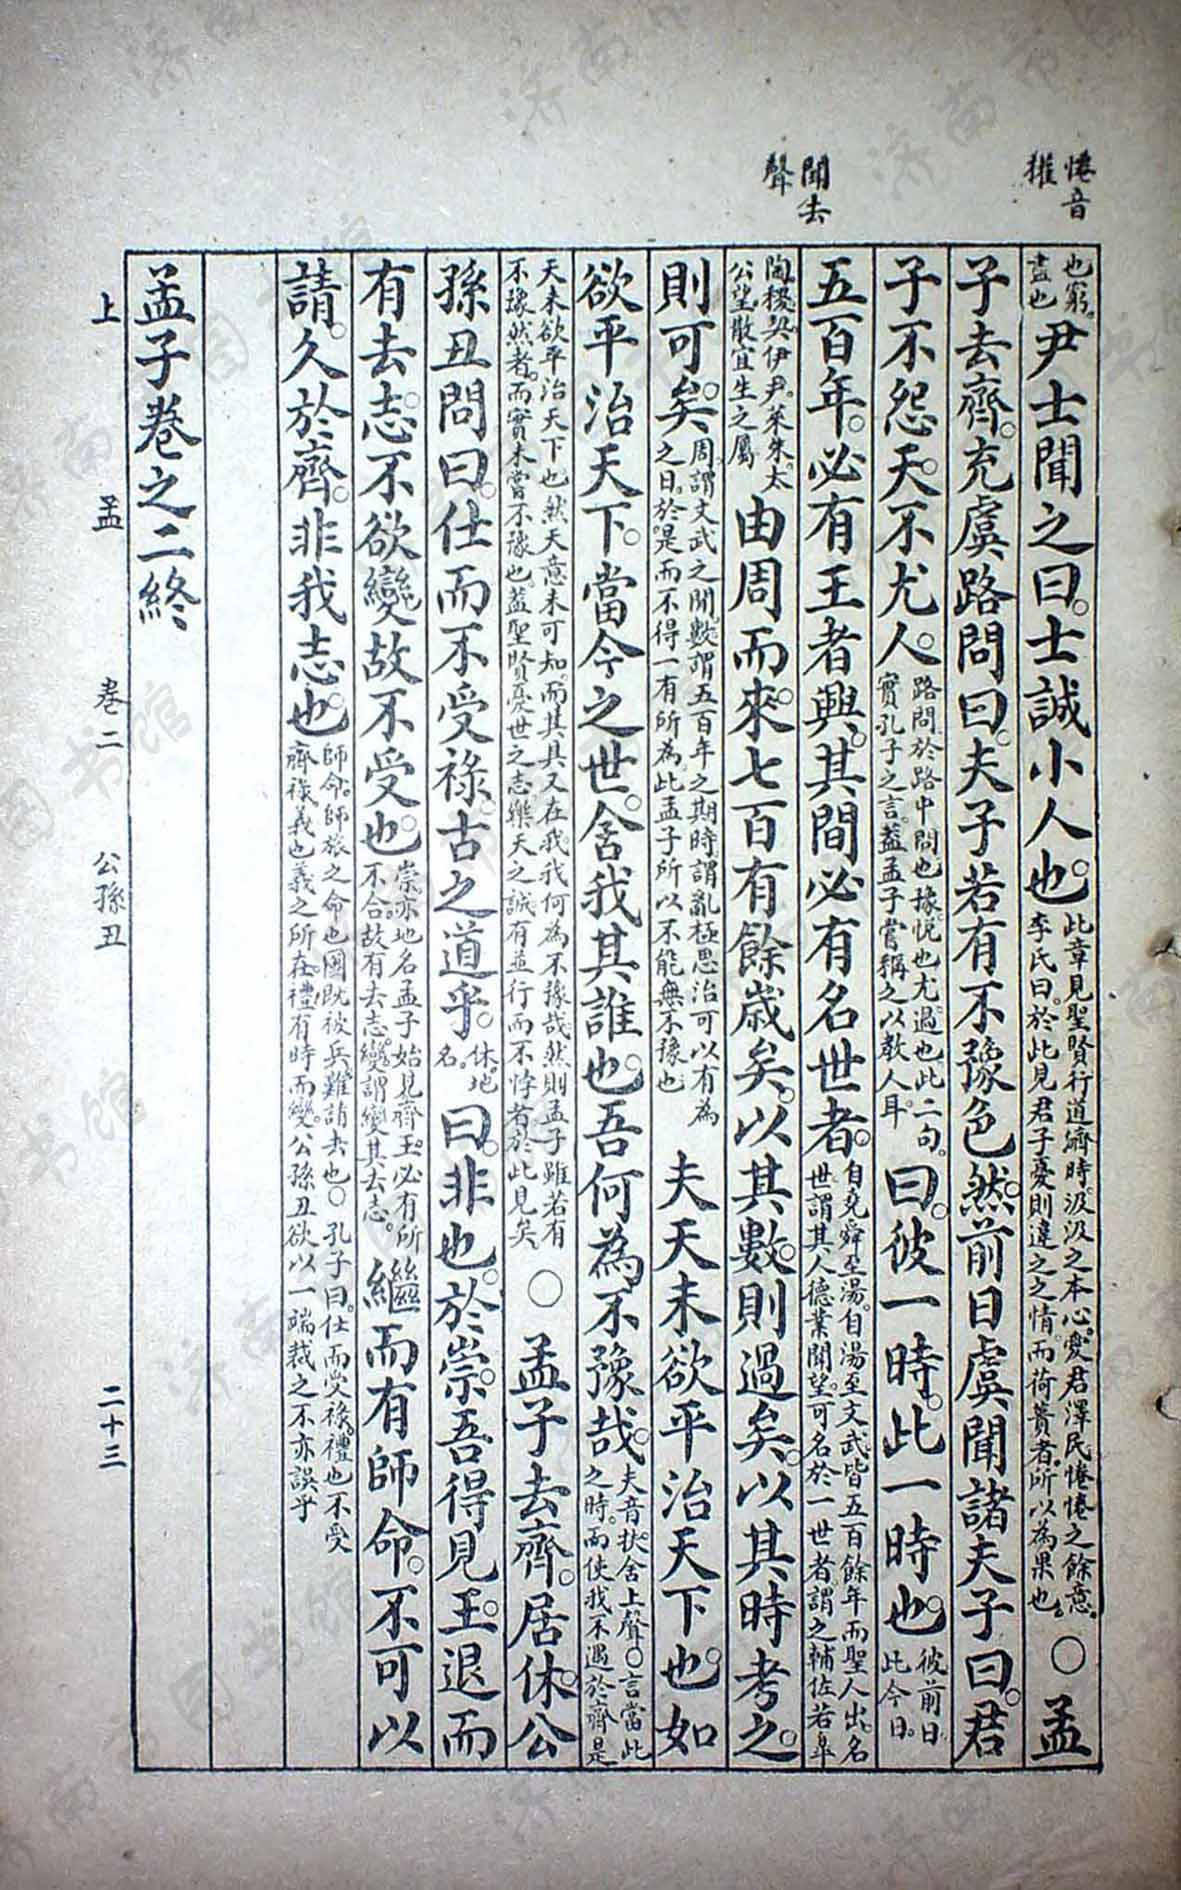 惓音
獾
聞去
聲
也窮
盡也
尹士聞之曰。士誠小人也。
此章見聖賢行道濟時。汲汲之本心。愛君澤民惓惓之餘意。
李氏曰。於此見君子憂則違之之情。而荷蕢者。所以為果也。
○孟
子去齊。充虞路問曰。夫子若有不豫色然。前日虞聞諸夫子曰。君
子不怨天。不尤人。
路問於路中問也。豫。悅也。尤。過也。此二句。
實孔子之言。蓋孟子嘗稱之以教人耳。
曰。彼一時。此一時也。
彼前日
此今日。
五百年。必有王者興。其間必有名世者。
自堯舜至湯。自湯至文武皆五百餘年而聖人出。名
世謂其人德業聞望。可名於一世者。謂之輔佐。若皐
陶稷契。伊尹。萊朱。太
公望散宜生之屬
由周而來。七百有餘歲矣。以其數則過矣。以其時考之。
則可矣。
周。謂文武之間。數謂五百年之期時謂亂極思治可以有為
之日。於是而不得一有所為此孟子所以不能無不豫也
夫天未欲平治天下也。如
欲平治天下。當今之世。舍我其誰也。吾何為不豫哉。
夫音扶。舍上聲○言當此
之時。而使我不遇於齊。是
天未欲平治天下也。然天意未可知。而其具又在我。我何為不豫哉。然則孟子雖若有
不豫然者。而實未嘗不豫也。蓋聖賢憂世之志。樂天之誠。有並行而不悖者。於此見矣。
○孟子去齊。居休。公
孫丑問曰。仕而不受祿。古之道乎。
休。地
名。
曰。非也。於崇。吾得見王。退而
有去志。不欲變。故不受也。
崇。亦地名。孟子始見齊王。必有所
不合。故有去志。變。謂變其去志。
繼而有師命。不可以
請。久於齊。非我志也。
師命。師旅之命也。國既被兵。難請去也○孔子曰。仕而受祿。禮也。不受
齊祿義也。義之所在。禮有時而變。公孫丑欲以一端裁之。不亦誤乎
孟子卷之二終
上 孟 卷二 公孫丑 二十三